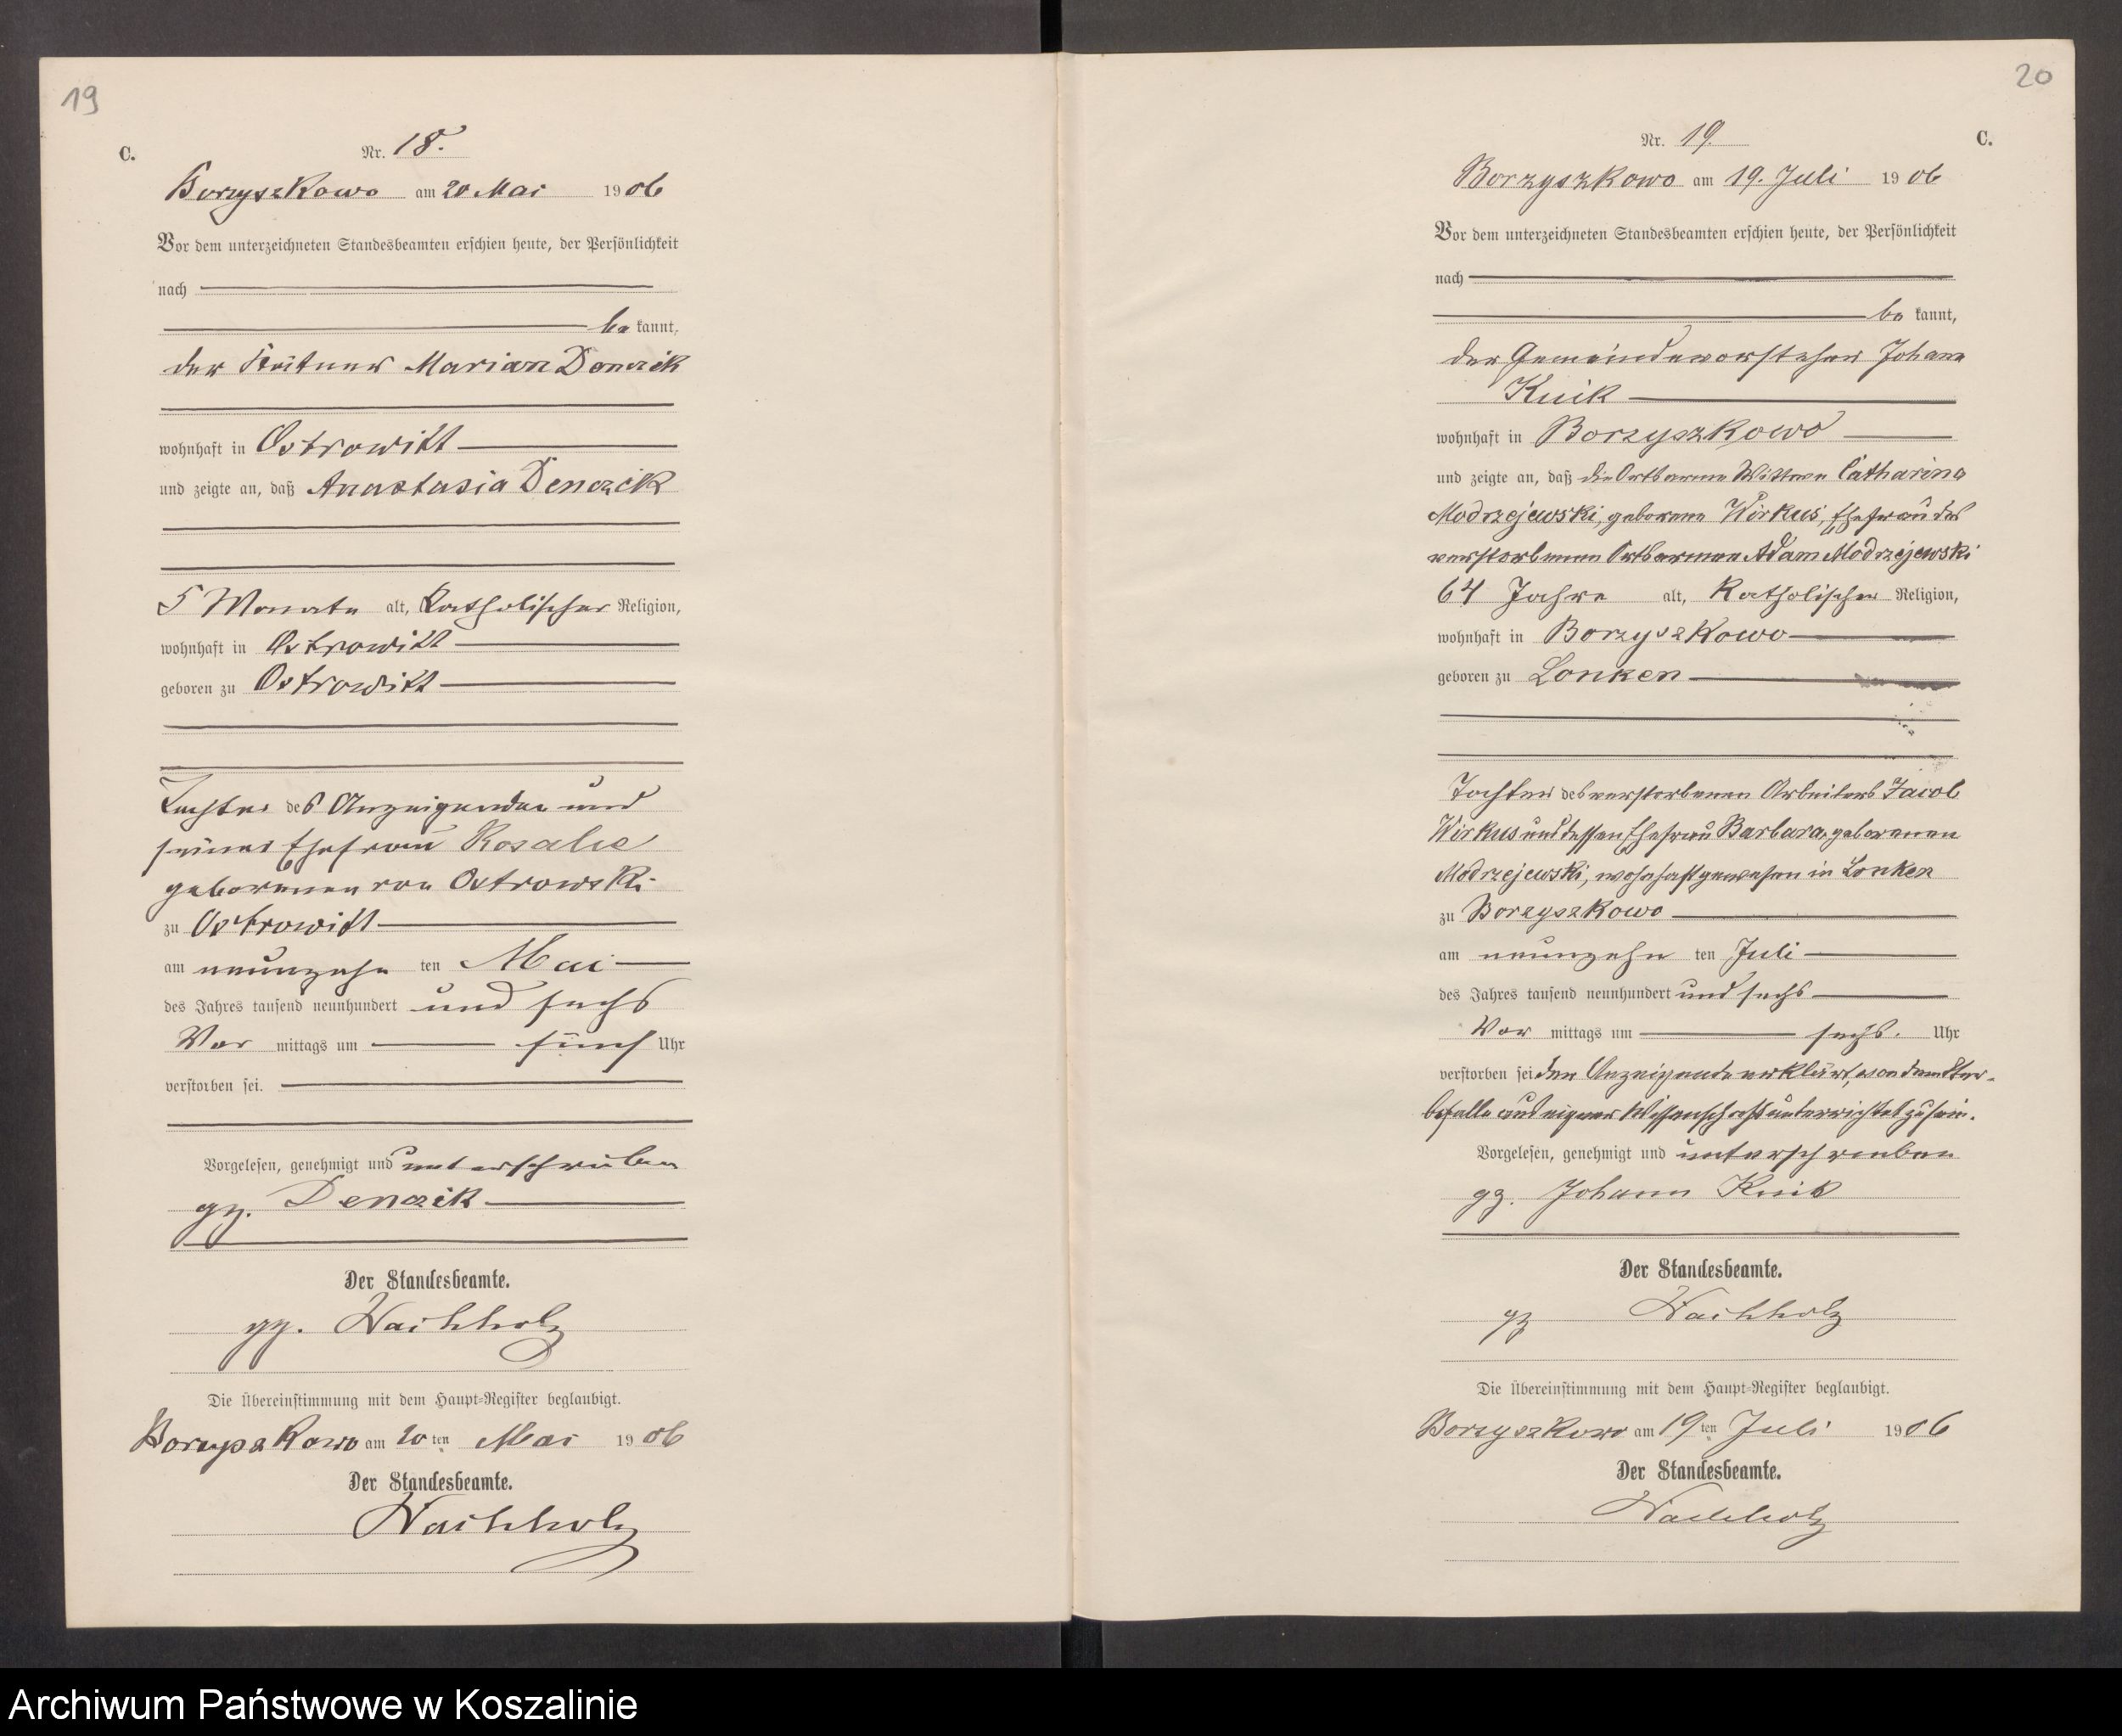 19
C.
Nr. 18.
Borzyszkowo am 20 Mai 1906
Vor dem unterzeichneten Standesbeamten erschien heute, der Persönlichkeit
nach
be kannt,
der Kätner Marian Denczik
wohnhaft in Ostrowitt
und zeigte an, daß Anastasia Denczik
5 Monate alt, katholischer Religion,
wohnhaft in Ostrowitt
geboren zu Ostrowitt
Tochter des Anzeigenden und
seiner Ehefrau Rosalie
geborenen von Ostrowski
zu Ostrowitt
am neunzehn ten Mai
des Jahres tausend neunhundert und sechs
Vor mittags um fünf Uhr
verstorben sei.
Vorgelesen, genehmigt und unterschrieben
gz. Denczik
Der Standesbeamte.
gz. Wachholz
Die Übereinstimmung mit dem Haupt-Register beglaubigt.
Borzyszkowo am 20 ten Mai 1906
Der Standesbeamte.
Wachholz
20
C.
Nr. 19.
Borzyszkowo am 19. Juli 1906
Vor dem unterzeichneten Standesbeamten erschien heute, der Persönlichkeit
nach
be kannt,
der Gemeindevorsteher Johann
Knik
wohnhaft in Borzyszkowo
und zeigte an, daß die Ortsarme Wittwe Catharina
Modrzejewski, geborene Wirkus, Ehefrau des
verstorbenen Ortsarmen Adam Modrzejewski
64 Jahre alt, katholischer Religion,
wohnhaft in Borzyszkowo
geboren zu Lonken
Tochter des verstorbenen Arbeiters Jacob
Wirkus und dessen Ehefrau Barbara, geborenen
Modrzejewski, wohnhaft gewesen in Lonken
zu Borzyszkowo
am neunzehn ten Juli
des Jahres tausend neunhundert und sechs
Vor mittags um sechs. Uhr
verstorben sei der Anzeigende erklärt, von dem Ster-
befalle aus eigener Wissenschaft unterrichtet zu sein.
Vorgelesen, genehmigt und unterschrieben
gz. Johann Knik
Der Standesbeamte.
gz Wachholz
Die Übereinstimmung mit dem Haupt-Register beglaubigt.
Borzyszkowo am 19 ten Juli 1906
Der Standesbeamte.
Wachholz
Archiwum Państwowe w Koszalinie